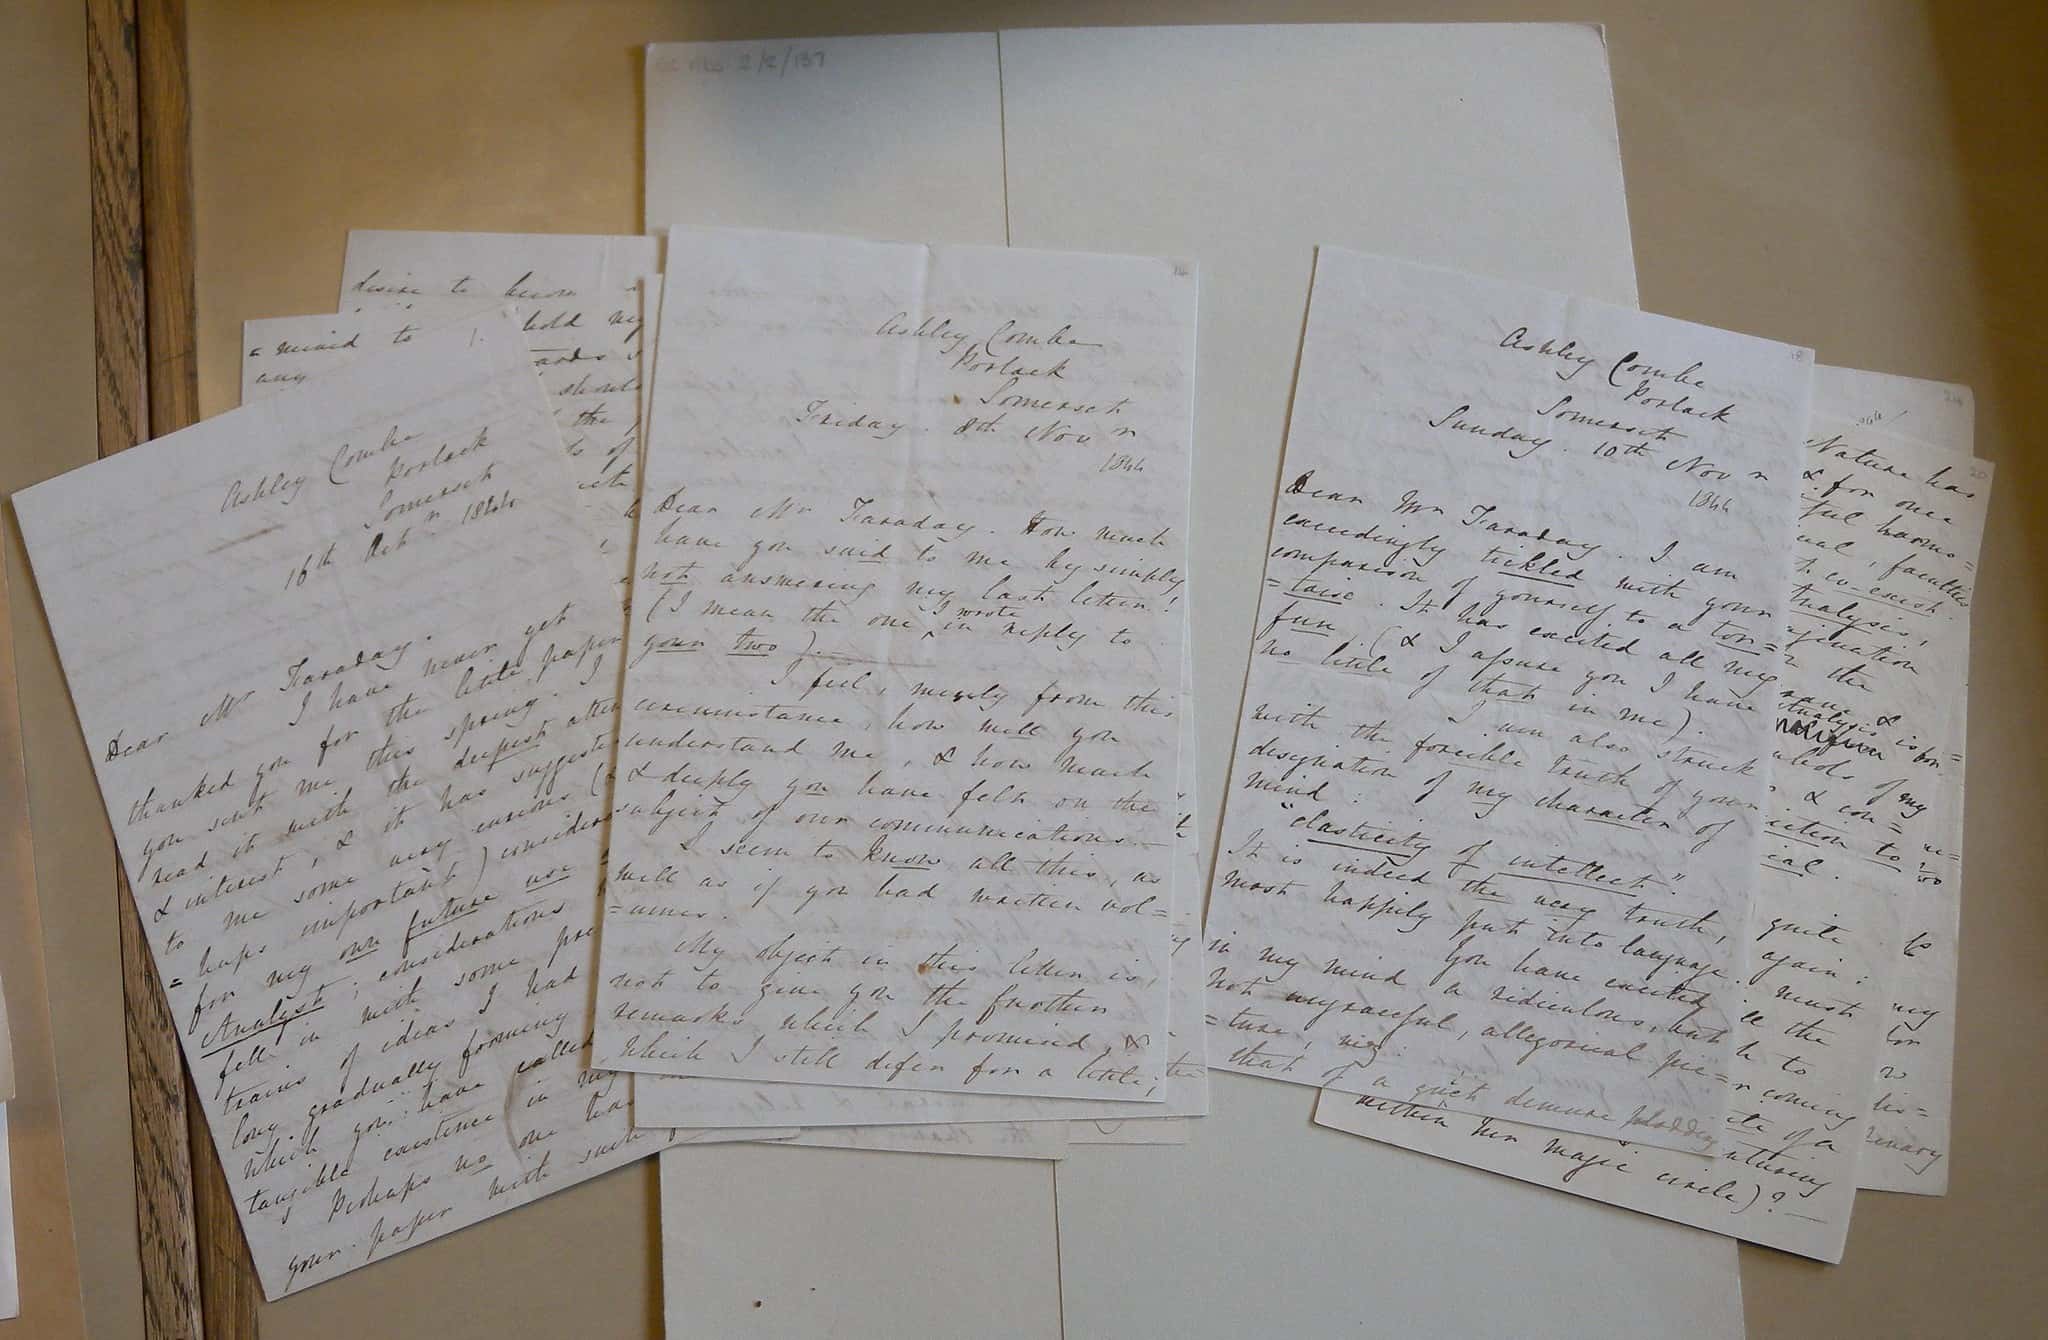 2/2/137
desire to
= mind to
any
hold my
should
the
of
Ashley Combe
Porlock
Somerset
16th Octr 1844
Dear Mr Faraday.
I have never yet
thanked you for the little paper
you sent me this spring. I
read it with the deepest atten
& interest, & it has suggeste
to me some very curious (&
= haps important) considera
for my own future use
Analyst; considerations
fell in with some pre
trains of ideas I had
long gradually forming
which you have called
tangible existence in my
Perhaps no one has
your paper with such
14
Ashley Combe
Porlock
Somerset
Friday. 8th Novr
1844
Dear Mr Faraday. How much
have you said to me by simply
not answering my last letter!
(I mean the one I wrote in reply to
your two).
I feel, merely from this
circumstance, how well you
understand me, & how much
& deeply you have felt on the
subject of our communications.
I seem to know all this, as
well as if you had written vol=
=umes.
My object in this letter is,
not to give you the further
remarks which I promised, &
which I still defer for a little;
18
Ashley Combe
Porlock
Somerset
Sunday. 10th Novr
1844
Dear Mr Faraday. I am
exceedingly tickled with your
comparison of yourself to a tor=
=toise. It has excited all my
fun (& I assure you I have
no little of that in me).
I am also struck
with the forcible truth of your
designation of my character of
mind:
"elasticity of intellect".
It is indeed the very truth,
most happily put into language.
You have excited
in my mind a ridiculous, but
not ungraceful, allegorical pic=
=ture, viz:
that of a quiet demure plodding
within her magic circle)?
20
Nature has
& for once
ful harmo=
faculties
co-exist
Analysis,
the
& con=
of my
quite
again:
my
must
the
to
coming
of a